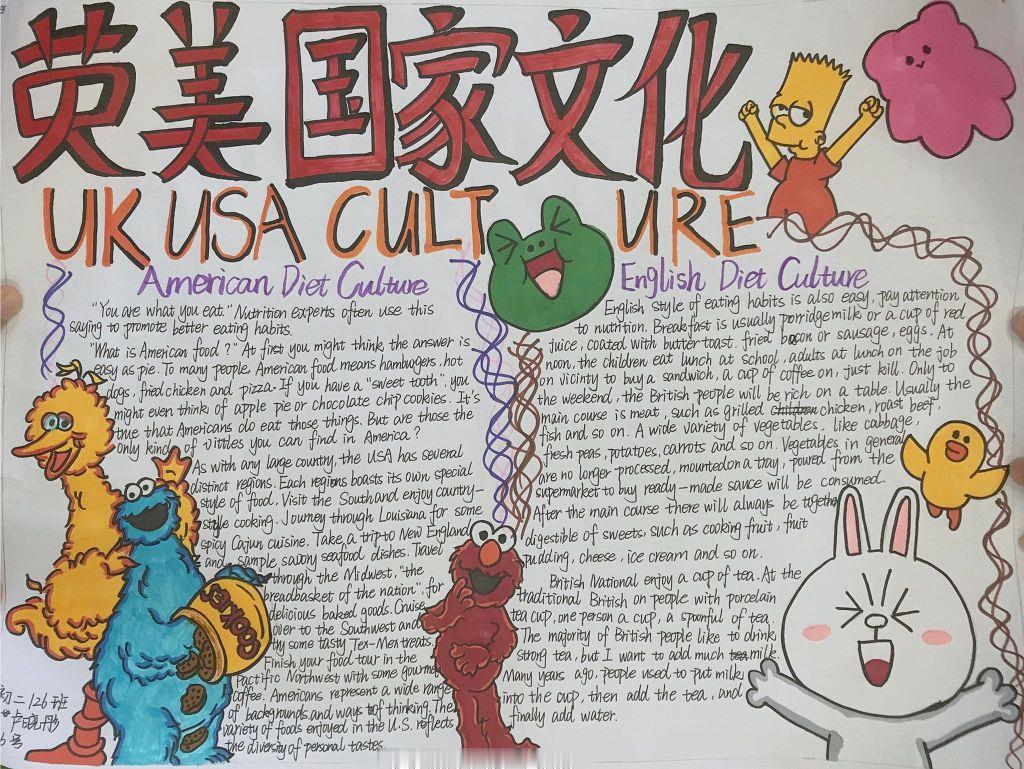 英美国家文化
UK USA CULTURE
American Diet Culture
"You are what you eat." Nutrition experts often use this
saying to promote better eating habits.
"What is American food?" At first you might think the answer is
easy as pie. To many people, American food means hambugers, hot
dogs, fried chicken and pizza. If you have a "sweet tooth", you
might even think of apple pie or chocolate chip cookies. It's
true that Americans do eat those things. But are those the
only kind of vittles you can find in America?
As with any large country, the USA has several
distinct regions. Each regions boasts its own special
style of food. Visit the South and enjoy country-
style cooking. Journey through Louisiana for some
spicy Cajun cuisine. Take a trip to New England
and sample savory seafood dishes. Travel
through the Midwest, "the
breadbasket of the nation", for
delicious baked goods. Cruise
over to the Southwest and
try some tasty Tex-Mex treats.
Finish your food tour in the
Pacific Northwest with some gourmet
coffee. Americans represent a wide range
of backgrounds and ways of thinking. The
variety of foods enjoyed in the U.S. reflects
the diversity of personal tastes.
English Diet Culture
English style of eating habits is also easy, pay attention
to nutrition. Breakfast is usually porridge milk or a cup of red
juice, coated with butter toast. fried bacon or sausage, eggs. At
noon, the children eat lunch at school, adults at lunch on the job
on vicinty to buy a sandwich, a cup of coffee on, just kill. Only to
the weekend, the British people will be rich on a table. Usually the
main course is meat, such as grilled chicken, roast beef,
fish and so on. A wide variety of vegetables, like cabbage,
fresh peas, potatoes, carrots and so on. Vegetables in general
are no longer processed, mounted on a tray, powed from the
supermarket to buy ready-made sauce will be consumed.
After the main course there will always be together
digestible of sweets, such as cooking fruit, fruit
pudding, cheese, ice cream and so on.
British National enjoy a cup of tea. At the
traditional British on people with porcelain
tea cup, one person a cup, a spoonful of tea.
The majority of British people like to drink
strong tea, but I want to add much milk.
Many years ago, people used to put milk
into the cup, then add the tea, and
finally add water.
COOKIES
初二126班
6号